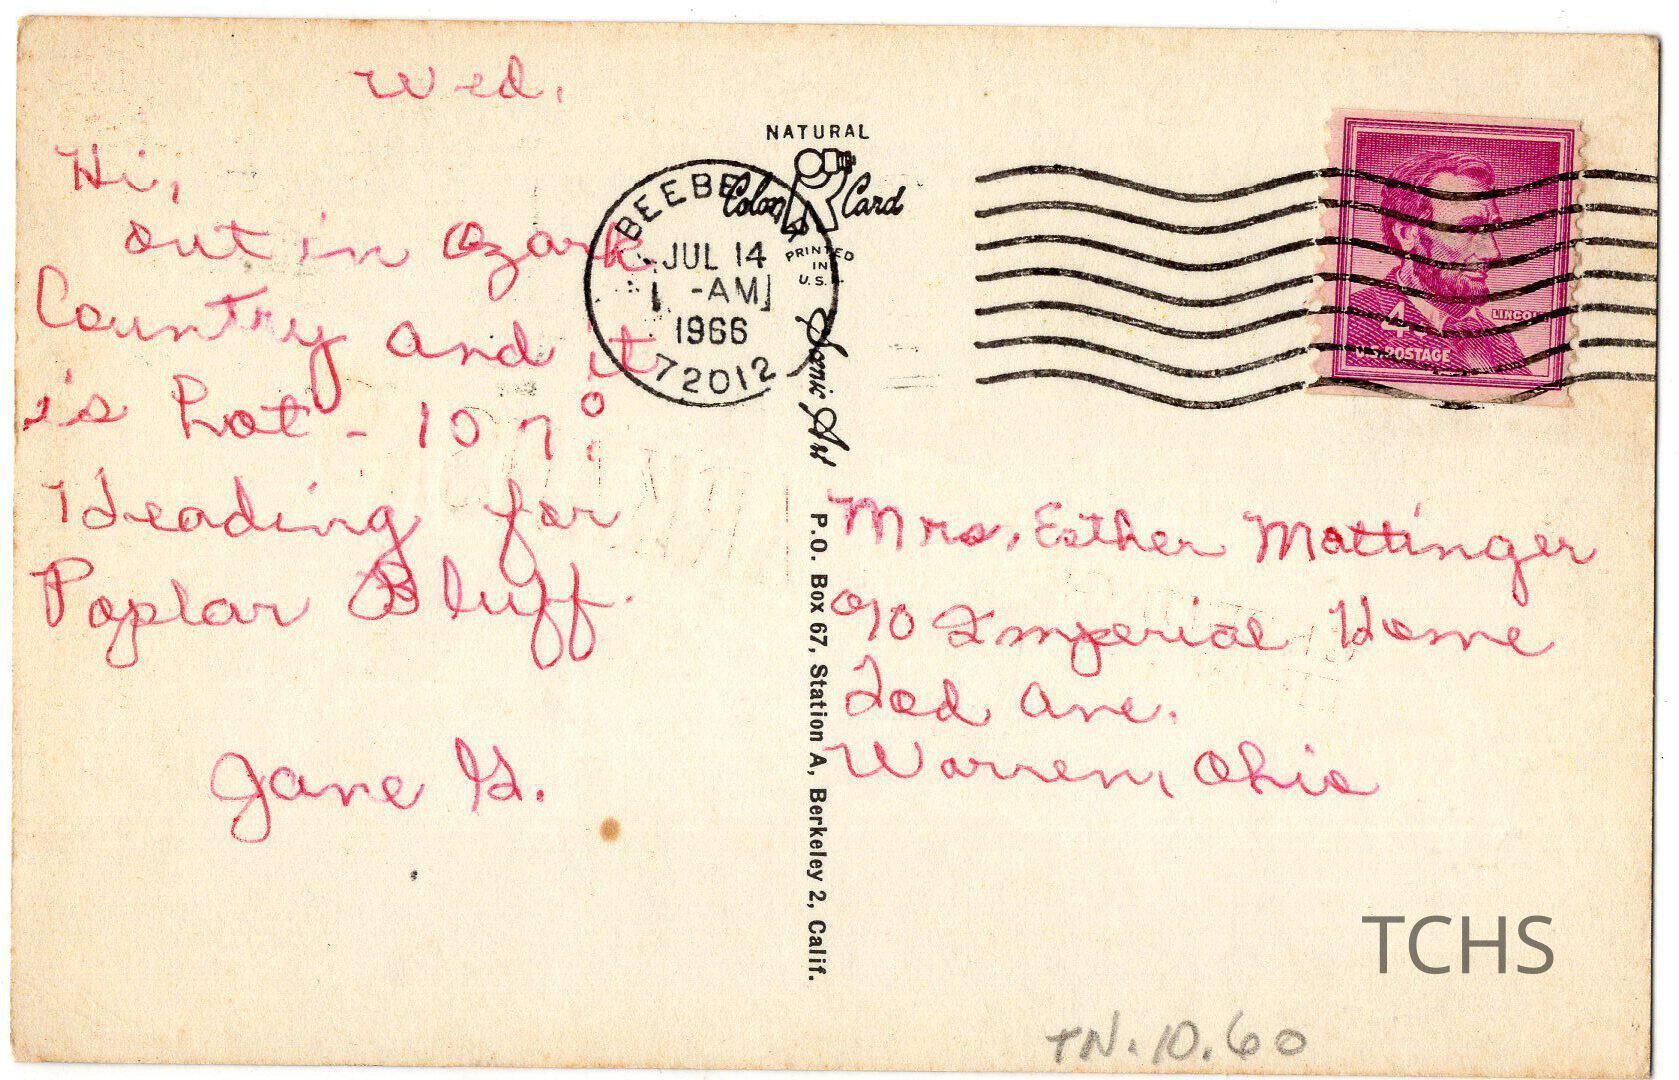 Wed.
Hi,
out in Ozark
Country and it
is hot - 107°.
Heading for
Poplar Bluff.
Jane H.
NATURAL
Color Card
PRINTED
IN
U.S.A.
BEEBE
JUL 14
-AM
1966
72012
Scenic Art
P.O. Box 67, Station A, Berkeley 2, Calif.
LINCOLN
4
U.S. POSTAGE
Mrs. Esther Mattinger
℅ Imperial Home
Tod Ave.
Warren, Ohio
TCHS
TN.10.60